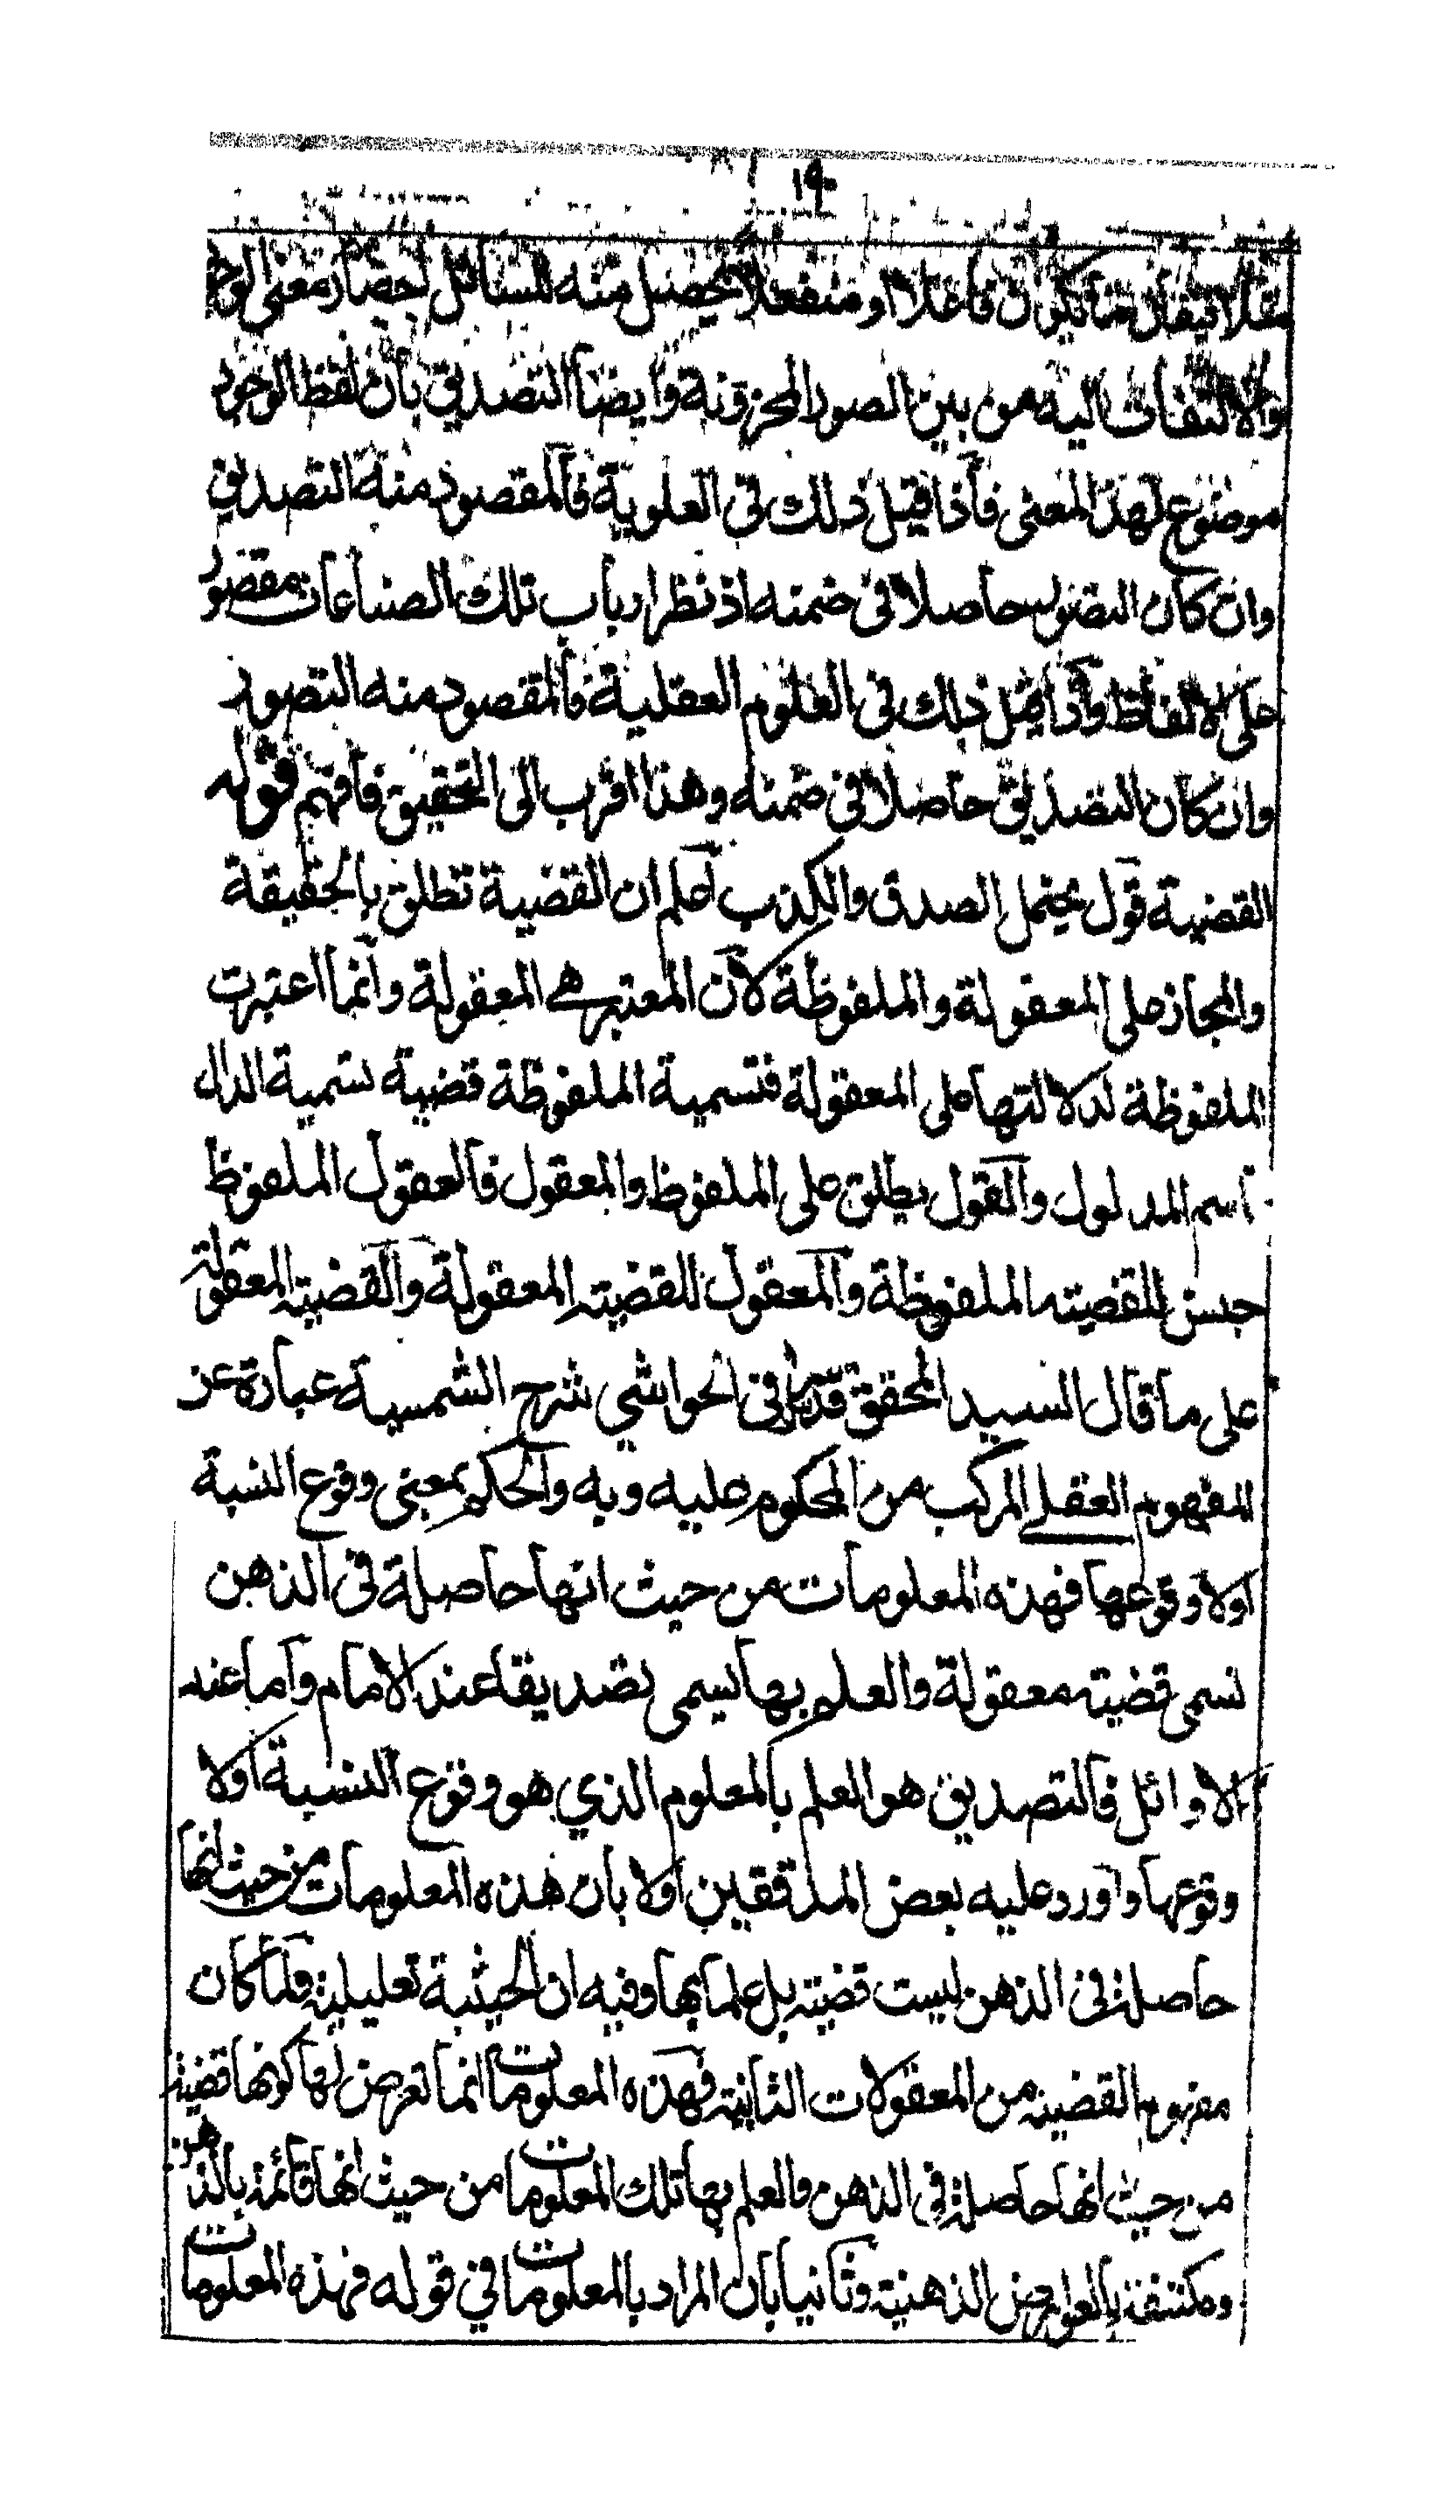 ١٩
مثلا فيقال ما يكون فاعلا او منفعلا فيحصل منه للسائل احضار معنى الوجود
والالتفات اليه من بين الصور المخزونة وايضا التصديق بان لفظ الوجود
موضوع لهذا المعنى فاذا قيل ذلك فى العلوية فالمقصود منه التصديق
وان كان التصور حاصلا فى ضمنه اذ نظر ارباب تلك الصناعات مقصور
على الالفاظ واذا قيل ذلك فى العلوم العقلية فالمقصود منه التصور
وان كان التصديق حاصلا فى ضمنه وهذا اقرب الى التحقيق فافهم قوله
القضية قول يحتمل الصدق والكذب اعلم ان القضية تطلق بالحقيقة
والمجاز على المعقولة والملفوظة لان المعتبر هى المعقولة وانما اعتبرت
الملفوظة لدلالتها على المعقولة فتسمية الملفوظة قضية تسمية الدال
اسم المدلول والقول يطلق على الملفوظ والمعقول فالقول الملفوظ
جنس للقضية الملفوظة والمعقول للقضية المعقولة والقضية المعقولة
على ما قال السيد المحقق قدس سره فى الحواشي شرح الشمسية عبارة عن
المفهوم العقلى المركب من المحكوم عليه وبه والحكم بمعنى وقوع النسبة
اولا وقوعها فهذه المعلومات من حيث انها حاصلة فى الذهن
تسمى قضية معقولة والعلم بها يسمى تصديقا عند الامام واما عند
الاوائل فالتصديق هو العلم بالمعلوم الذي هو وقوع النسبة اولا
وقوعها واورد عليه بعض المدققين اولا بان هذه المعلومات من حيث انها
حاصلة فى الذهن ليست قضية بل علما بها وفيه ان الحيثية تعليلية فلما كان
مفهوم القضية من المعقولات الثانية فهذه المعلومات انما تعرض لها كونها قضية
من حيث انها حاصلة فى الذهن والعلم بها تلك المعلومات من حيث انها قائمة بالذهن
ومكتنفة بالعوارض الذهنية وثانيا بان المراد بالمعلومات في قوله فهذه المعلومات